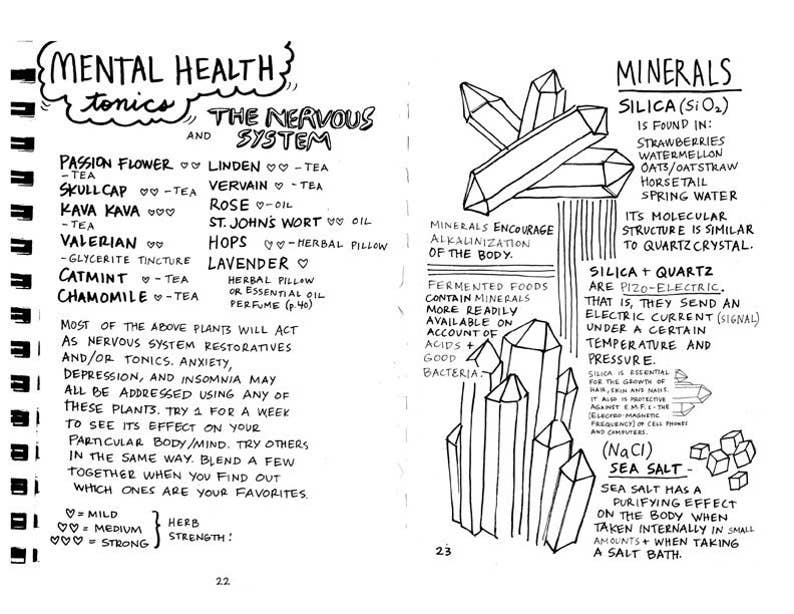 MENTAL HEALTH
tonics
AND THE NERVOUS
SYSTEM
PASSION FLOWER ♡♡
- TEA
SKULLCAP ♡♡ - TEA
KAVA KAVA ♡♡♡
- TEA
VALERIAN ♡♡
- GLYCERITE TINCTURE
CATMINT ♡ - TEA
CHAMOMILE ♡ - TEA
LINDEN ♡♡ - TEA
VERVAIN ♡ - TEA
ROSE ♡ - OIL
ST. JOHN'S WORT ♡♡ OIL
HOPS ♡♡ - HERBAL PILLOW
LAVENDER ♡
HERBAL PILLOW
OR ESSENTIAL OIL
PERFUME (p.40)
MOST OF THE ABOVE PLANTS WILL ACT
AS NERVOUS SYSTEM RESTORATIVES
AND/OR TONICS. ANXIETY,
DEPRESSION, AND INSOMNIA MAY
ALL BE ADDRESSED USING ANY OF
THESE PLANTS. TRY 1 FOR A WEEK
TO SEE ITS EFFECT ON YOUR
PARTICULAR BODY/MIND. TRY OTHERS
IN THE SAME WAY. BLEND A FEW
TOGETHER WHEN YOU FIND OUT
WHICH ONES ARE YOUR FAVORITES.
♡ = MILD
♡♡ = MEDIUM
♡♡♡ = STRONG
HERB
STRENGTH!
22
MINERALS
SILICA (SiO₂)
IS FOUND IN:
STRAWBERRIES
WATERMELLON
OATS/OATSTRAW
HORSETAIL
SPRING WATER
ITS MOLECULAR
STRUCTURE IS SIMILAR
TO QUARTZ CRYSTAL.
MINERALS ENCOURAGE
ALKALINIZATION
OF THE BODY.
FERMENTED FOODS
CONTAIN MINERALS
MORE READILY
AVAILABLE ON
ACCOUNT OF
ACIDS +
GOOD
BACTERIA.
SILICA + QUARTZ
ARE PIZO-ELECTRIC.
THAT IS, THEY SEND AN
ELECTRIC CURRENT (SIGNAL)
UNDER A CERTAIN
TEMPERATURE AND
PRESSURE.
SILICA IS ESSENTIAL
FOR THE GROWTH OF
HAIR, SKIN AND NAILS.
IT ALSO IS PROTECTIVE
AGAINST E.M.F.s - THE
(ELECTRO-MAGNETIC
FREQUENCY) OF CELL PHONES
AND COMPUTERS.
(NaCl)
SEA SALT -
SEA SALT HAS A
PURIFYING EFFECT
ON THE BODY WHEN
TAKEN INTERNALLY IN SMALL
AMOUNTS + WHEN TAKING
A SALT BATH.
23